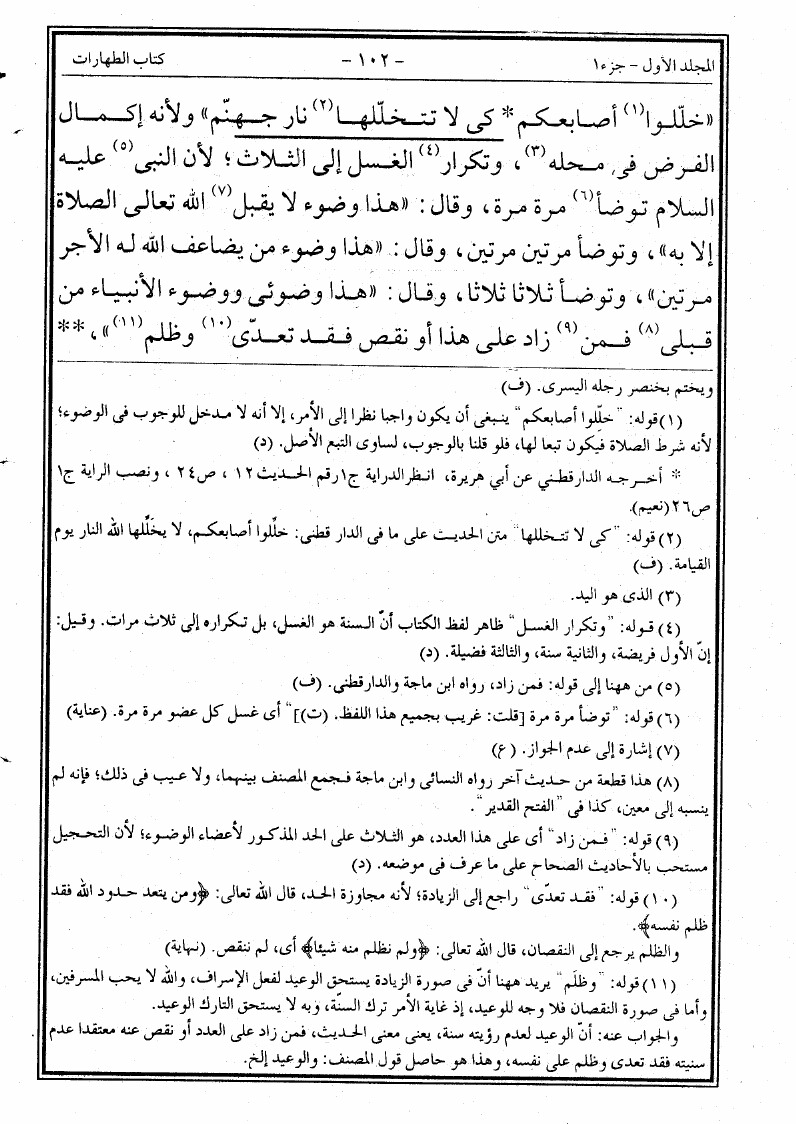 المجلد الأول - جزء ١ - ١٠٢ - كتاب الطهارات
«خلّلوا(١) أصابعكم* كى لا تتخللها(٢) نار جهنّم» ولأنه إكمال
الفرض فى محله(٣)، وتكرار(٤) الغسل إلى الثلاث؛ لأن النبى(٥) عليه
السلام توضأ(٦) مرة مرة، وقال: «هذا وضوء لا يقبل(٧) الله تعالى الصلاة
إلا به»، وتوضأ مرتين مرتين، وقال: «هذا وضوء من يضاعف الله له الأجر
مرتين»، وتوضأ ثلاثا ثلاثا، وقال: «هذا وضوئى ووضوء الأنبياء من
قبلى(٨) فمن(٩) زاد على هذا أو نقص فقد تعدّى(١٠) وظلم(١١)»، **
ويختم بخنصر رجله اليسرى. (ف)
(١) قوله: "خلّلوا أصابعكم" ينبغى أن يكون واجبا نظرا إلى الأمر، إلا أنه لا مدخل للوجوب فى الوضوء؛
لأنه شرط الصلاة فيكون تبعا لها، فلو قلنا بالوجوب، لساوى التبع الأصل. (د)
* أخرجه الدارقطني عن أبي هريرة، انظر الدراية ج١ رقم الحديث ١٢، ص٢٤، ونصب الراية ج١
ص٢٦ (نعيم).
(٢) قوله: "كى لا تتخللها" متن الحديث على ما فى الدار قطنى: خلّلوا أصابعكم، لا يخلّلها الله النار يوم
القيامة. (ف)
(٣) الذى هو اليد.
(٤) قوله: "وتكرار الغسل" ظاهر لفظ الكتاب أنّ السنة هو الغسل، بل تكراره إلى ثلاث مرات. وقيل:
إنّ الأول فريضة، والثانية سنة، والثالثة فضيلة. (د)
(٥) من ههنا إلى قوله: فمن زاد، رواه ابن ماجة والدارقطنى. (ف)
(٦) قوله: "توضأ مرة مرة [قلت: غريب بجميع هذا اللفظ. (ت)]" أى غسل كل عضو مرة مرة. (عناية)
(٧) إشارة إلى عدم الجواز. (ع)
(٨) هذا قطعة من حديث آخر رواه النسائى وابن ماجة فجمع المصنف بينهما، ولا عيب فى ذلك؛ فإنه لم
ينسبه إلى معين، كذا فى "الفتح القدير".
(٩) قوله: "فمن زاد" أى على هذا العدد، هو الثلاث على الحد المذكور لأعضاء الوضوء؛ لأن التحجيل
مستحب بالأحاديث الصحاح على ما عرف فى موضعه. (د)
(١٠) قوله: "فقد تعدّى" راجع إلى الزيادة؛ لأنه مجاوزة الحد، قال الله تعالى: ﴿ومن يتعد حدود الله فقد
ظلم نفسه﴾.
والظلم يرجع إلى النقصان، قال الله تعالى: ﴿ولم تظلم منه شيئا﴾ أى، لم تنقص. (نهاية)
(١١) قوله: "وظلَم" يريد ههنا أنّ فى صورة الزيادة يستحق الوعيد لفعل الإسراف، والله لا يحب المسرفين،
وأما فى صورة النقصان فلا وجه للوعيد، إذ غاية الأمر ترك السنّة، وبه لا يستحق التارك الوعيد.
والجواب عنه: أنّ الوعيد لعدم رؤيته سنة، يعنى معنى الحديث، فمن زاد على العدد أو نقص عنه معتقدا عدم
سنيته فقد تعدى وظلم على نفسه، وهذا هو حاصل قول المصنف: والوعيد إلخ.